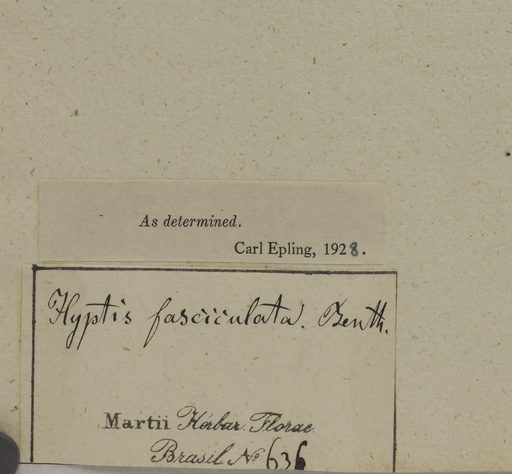 As determined.
Carl Epling, 1928.
Hyptis fasciculata. Benth.
Martii Herbar. Florae
Brasil. No 636